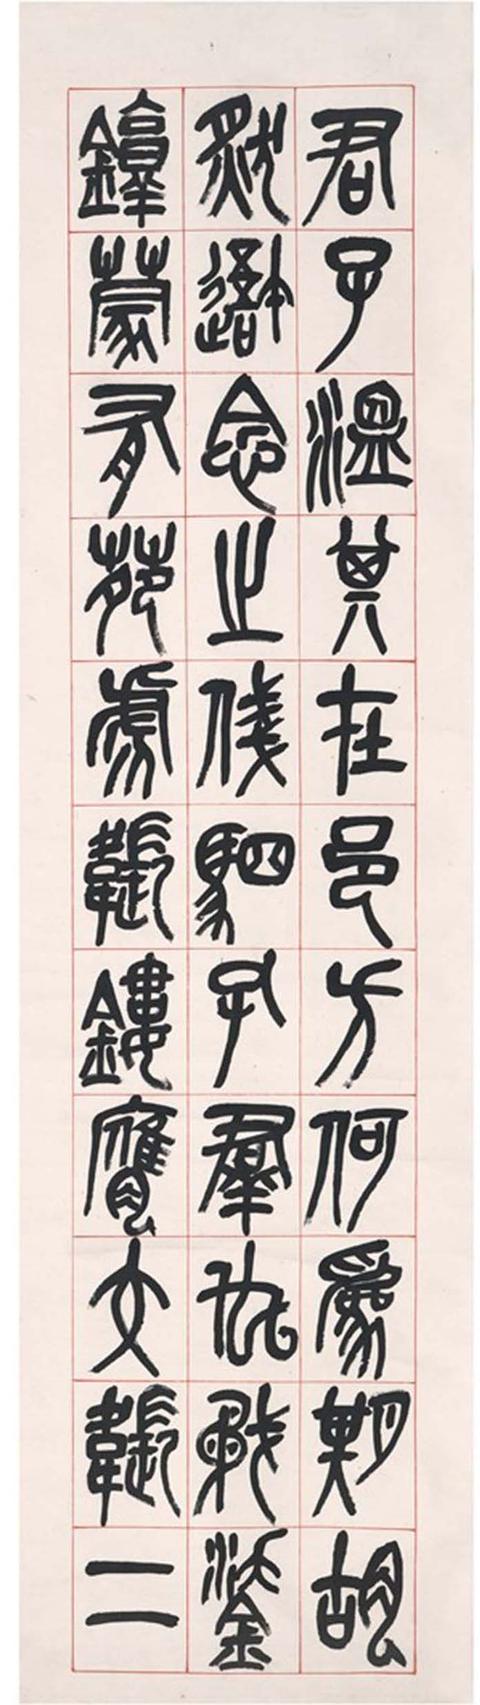 君子溫其在邑方何為期胡
然念之俴駟孔群厹矛鋈
錞蒙有苑虎韔鏤膺交韔二